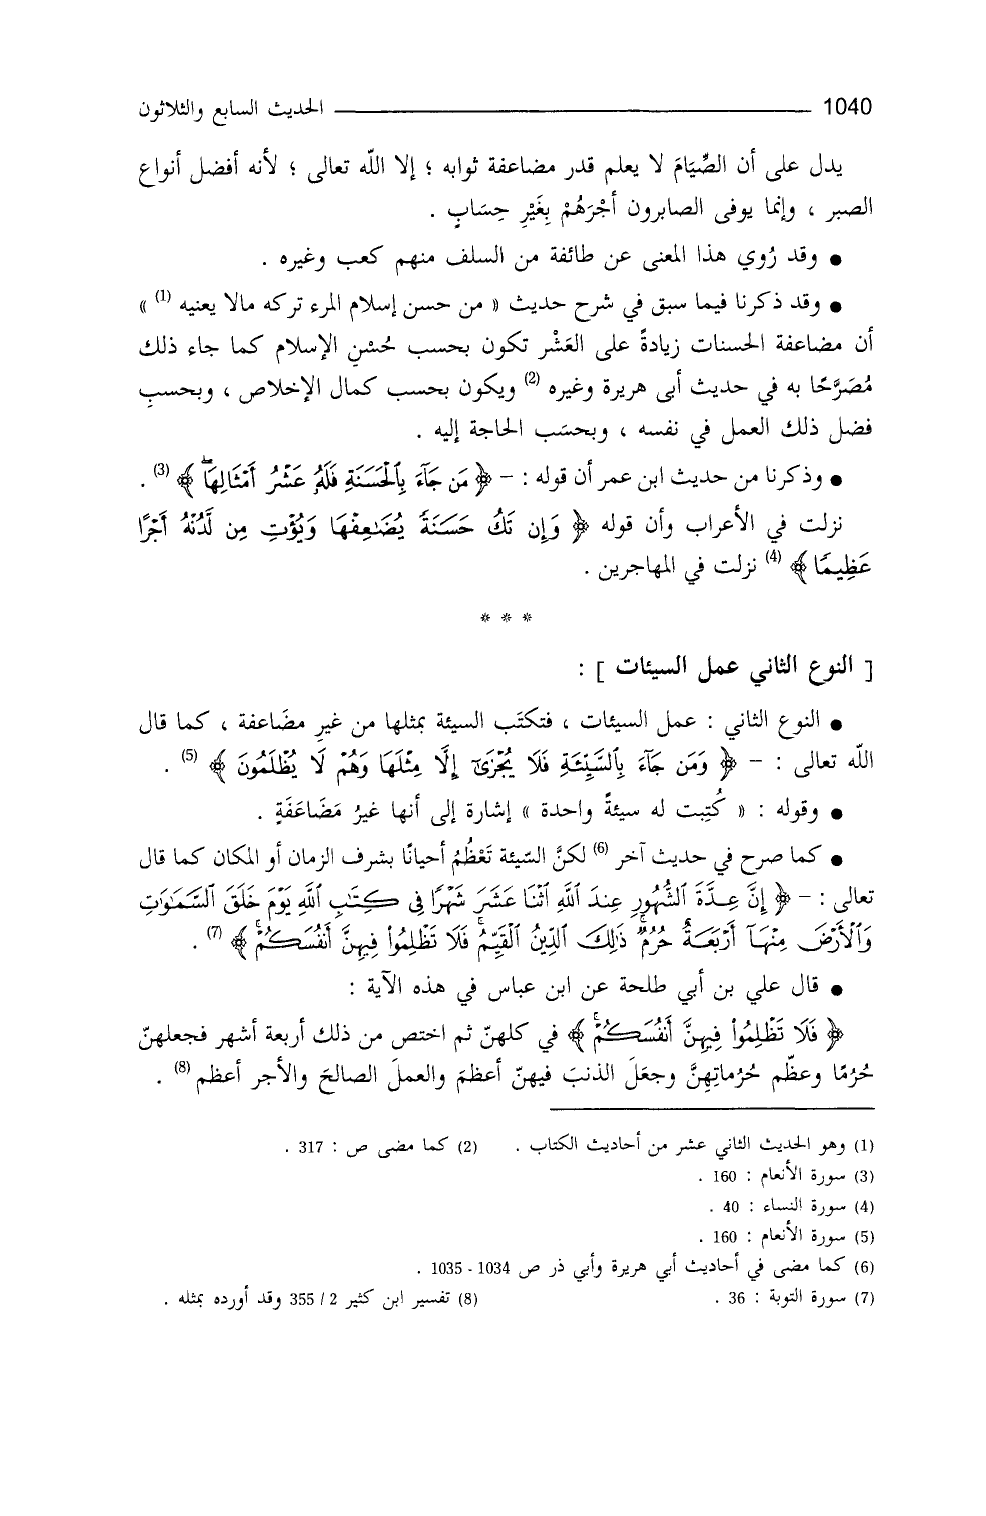 1040 الحديث السابع والثلاثون
يدل على أن الصِّيَامَ لا يعلم قدر مضاعفة ثوابه ؛ إلا اللّه تعالى ؛ لأنه أفضل أنواع
الصبر ، وإنما يوفى الصابرون أجْرَهُمْ بِغَيْرِ حِسَابٍ .
● وقد رُوي هذا المعنى عن طائفة من السلف منهم كعب وغيره .
● وقد ذكرنا فيما سبق في شرح حديث « من حسن إسلام المرء تركه مالا يعنيه (1) »
أن مضاعفة الحسنات زيادةً على العَشْر تكون بحسب حُسْنِ الإسلام كما جاء ذلك
مُصَرَّحًا به في حديث أبى هريرة وغيره (2) ويكون بحسب كمال الإخلاص ، وبحسبِ
فضل ذلك العمل في نفسه ، وبحسَب الحاجة إليه .
● وذكرنا من حديث ابن عمر أن قوله : – ﴿ مَن جَآءَ بِٱلْحَسَنَةِ فَلَهُۥ عَشْرُ أَمْثَالِهَا ۖ ﴾ (3) .
نزلت في الأعراب وأن قوله ﴿ وَإِن تَكُ حَسَنَةً يُضَٰعِفْهَا وَيُؤْتِ مِن لَّدُنْهُ أَجْرًا
عَظِيمًا ﴾ (4) نزلت في المهاجرين .
* * *
[ النوع الثاني عمل السيئات ] :
● النوع الثاني : عمل السيئات ، فتكتَب السيئة بمثلها من غيرِ مضَاعفة ، كما قال
اللّه تعالى : – ﴿ وَمَن جَآءَ بِٱلسَّيِّئَةِ فَلَا يُجْزَىٰٓ إِلَّا مِثْلَهَا وَهُمْ لَا يُظْلَمُونَ ﴾ (5) .
● وقوله : « كُتِبت له سيئةً واحدة » إشارة إلى أنها غيرُ مَضَاعَفَةٍ .
● كما صرح في حديث آخر (6) لكنَّ السّيئة تَعْظُمُ أحيانًا بشرف الزمان أو المكان كما قال
تعالى : – ﴿ إِنَّ عِدَّةَ ٱلشُّهُورِ عِندَ ٱللَّهِ ٱثْنَا عَشَرَ شَهْرًا فِى كِتَٰبِ ٱللَّهِ يَوْمَ خَلَقَ ٱلسَّمَٰوَٰتِ
وَٱلْأَرْضَ مِنْهَآ أَرْبَعَةٌ حُرُمٌ ۚ ذَٰلِكَ ٱلدِّينُ ٱلْقَيِّمُ ۚ فَلَا تَظْلِمُوا۟ فِيهِنَّ أَنفُسَكُمْ ۚ ﴾ (7) .
● قال علي بن أبي طلحة عن ابن عباس في هذه الآية :
﴿ فَلَا تَظْلِمُوا۟ فِيهِنَّ أَنفُسَكُمْ ۚ ﴾ في كلهنّ ثم اختص من ذلك أربعة أشهر فجعلهنّ
حُرُمًا وعظّم حُرُماتِهِنَّ وجعَلَ الذنبَ فيهنّ أعظمَ والعملَ الصالحَ والأجر أعظم (8) .
(1) وهو الحديث الثاني عشر من أحاديث الكتاب . (2) كما مضى ص : 317 .
(3) سورة الأنعام : 160 .
(4) سورة النساء : 40 .
(5) سورة الأنعام : 160 .
(6) كما مضى في أحاديث أبي هريرة وأبي ذر ص 1034 - 1035 .
(7) سورة التوبة : 36 . (8) تفسير ابن كثير 2 / 355 وقد أورده بمثله .